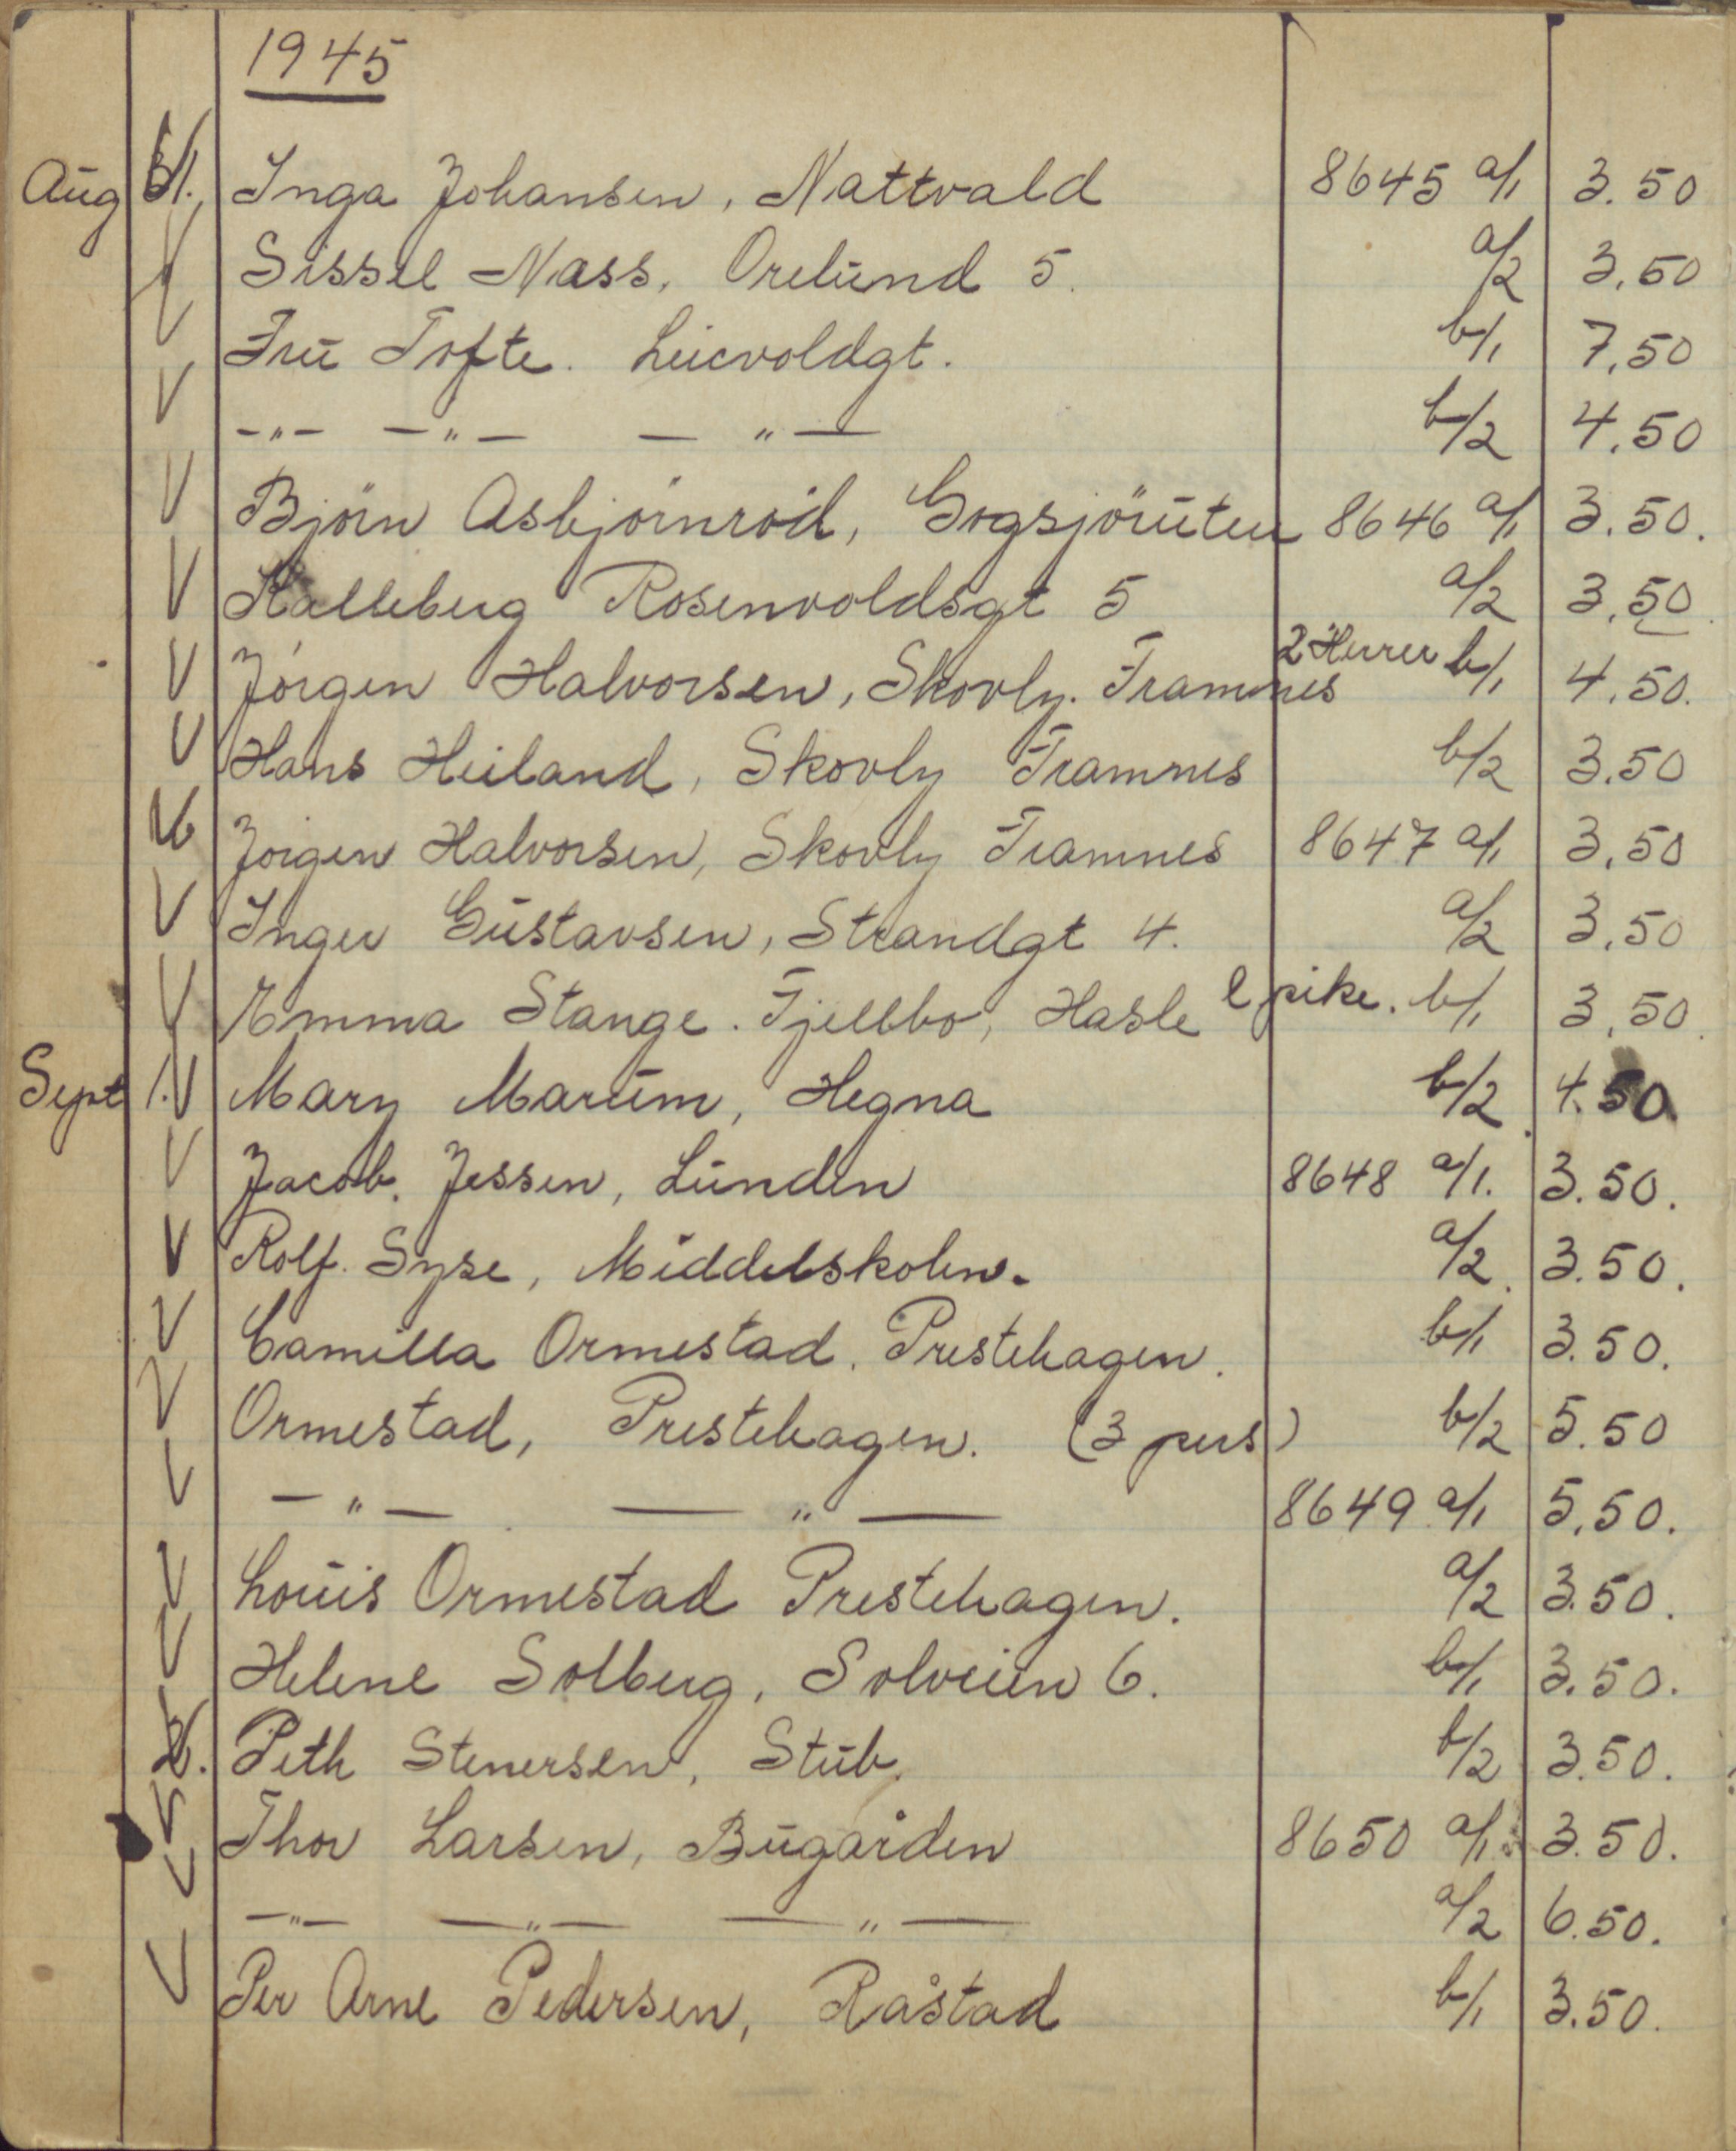 1945
Aug 31. Inga Johansen, Nattvald 8645 a/1 3.50
Sissel Nass, Orelund 5. a/2 3.50
Fru Tofte. b/1 7.50
-"- -"- - " - b/2 4.50
Bjørn Asbjørnrød, Gogsjøruten 8646 a/1 3.50.
Kalleberg Rosenvoldsgt 5 a/2 3.50
Jørgen Halvorsen, Skovly. Framnes 2 Herrer b/1 4.50.
Hans Heiland, Skovly Framnes b/2 3.50
Jørgen Halvorsen, Skovly Framnes 8647 a/1 3.50
Inger Gustavsen, Strandgt 4. a/2 3.50
Emma Stange. Fjellbo, Hasle l pike. b/1 3.50
Sept 1. Mary Marum, Hegna b/2 4.50
Jacob. Jessen, Lunden 8648 a/1. 3.50.
Rolf. Syse, Middelskolen. a/2. 3.50.
Camilla Ormestad. Prestehagen. b/1 3.50.
Ormestad, Prestehagen. (3 pers) b/2 5.50
- " - — " — 8649 a/1 5.50.
Louis Ormestad Prestehagen. a/2 3.50.
Helene Solberg, Solveien 6. b/1 3.50.
2. Peth Stenersen, Stub. b/2 3.50.
Thor Larsen, Bugården 8650 a/1 3.50.
-"- -"- — " — a/2 6.50.
Per Arne Pedersen, Råstad b/1 3.50.